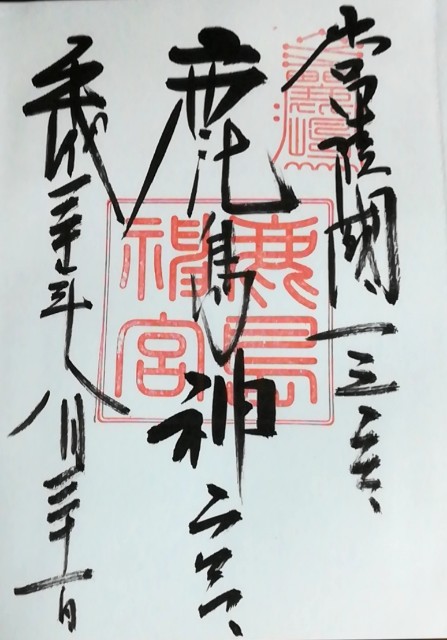 常陸國一之宮
鹿島神宮
平成三十年八月三十一日
鹿島
神宮